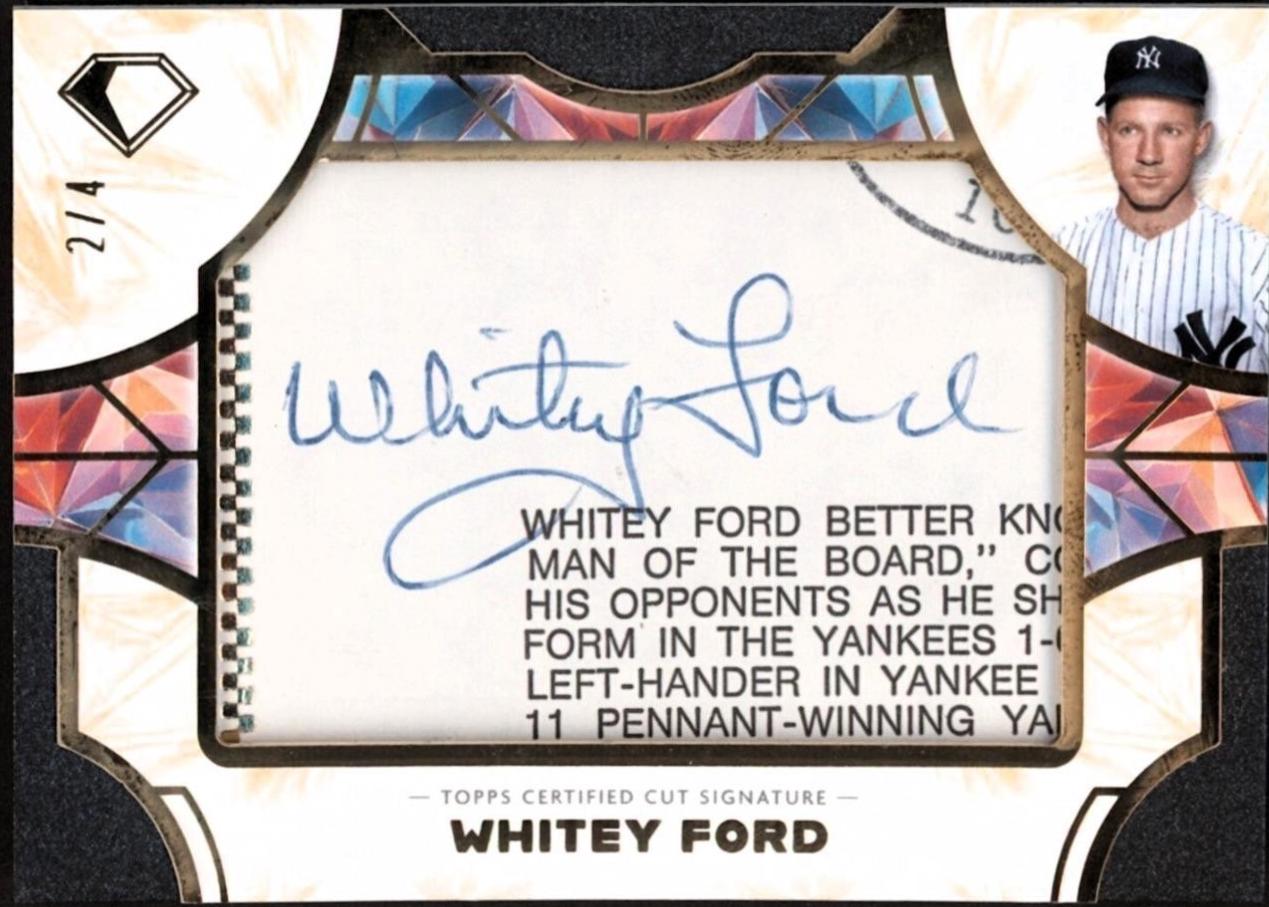 2/4
NY
10
Whitey Ford
NY
WHITEY FORD BETTER KNO
MAN OF THE BOARD,” CO
HIS OPPONENTS AS HE SH
FORM IN THE YANKEES 1-0
LEFT-HANDER IN YANKEE
11 PENNANT-WINNING YA
— TOPPS CERTIFIED CUT SIGNATURE —
WHITEY FORD